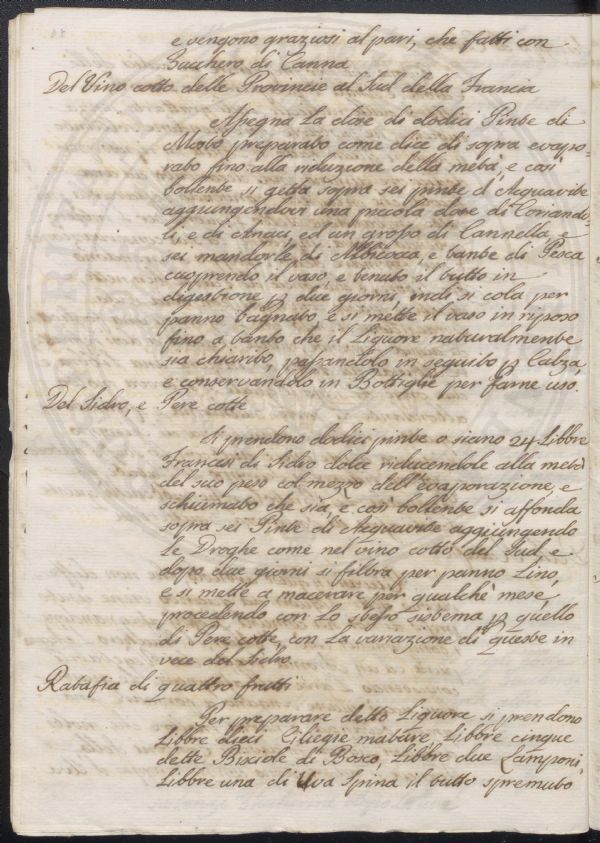 e vengono graziosi al pari, che fatti con
Zucchero di Canna
Del Vino cotto delle Provincie al Sud della Francia
la dose di dodici Pinte di
Mosto preparato come dice di sopra evapo-
rato fino alla riduzione della metà, e così
bollente si getta sopra sei pinte d'Acquavite
aggiungendovi una piccola dose di Coriando-
li, e di Anaci, ed un grosso di Cannella, e
sei mandorle di Albicocca, e tante di Pesca
cuoprendo il vaso, e tenuto il tutto in
digestione p due giorni, indi si cola per
panno bagnato, e si mette il vaso in riposo
fino a tanto che il Liquore naturalmente
sia chiarito, passandolo in seguito p Calza,
e conservandolo in Bottiglie per farne uso.
Del Sidro, e Pere cotte
Si prendono dodici pinte o siano 24 Libbre
Francesi di Sidro dolce riducendole alla metà
del suo peso col mezzo dell'evaporazione, e
schiumato che sia, e così bollente si affonda
sopra sei Pinte di Acquavite aggiungendo
le Droghe come nel vino cotto del Sud, e
dopo due giorni si filtra per panno Lino,
e si mette a macerare per qualche mese,
procedendo con lo stesso sistema p quello
di Pere cotte, con la variazione di queste in
vece del Sidro.
Ratafia di quattro frutti
Per preparare detto Liquore si prendono
Libbre dieci Ciliegie mature, Libbre cinque
dette Bisciole di Bosco, Libbre due Lamponi,
Libbre una di Uva Spina il tutto spremuto